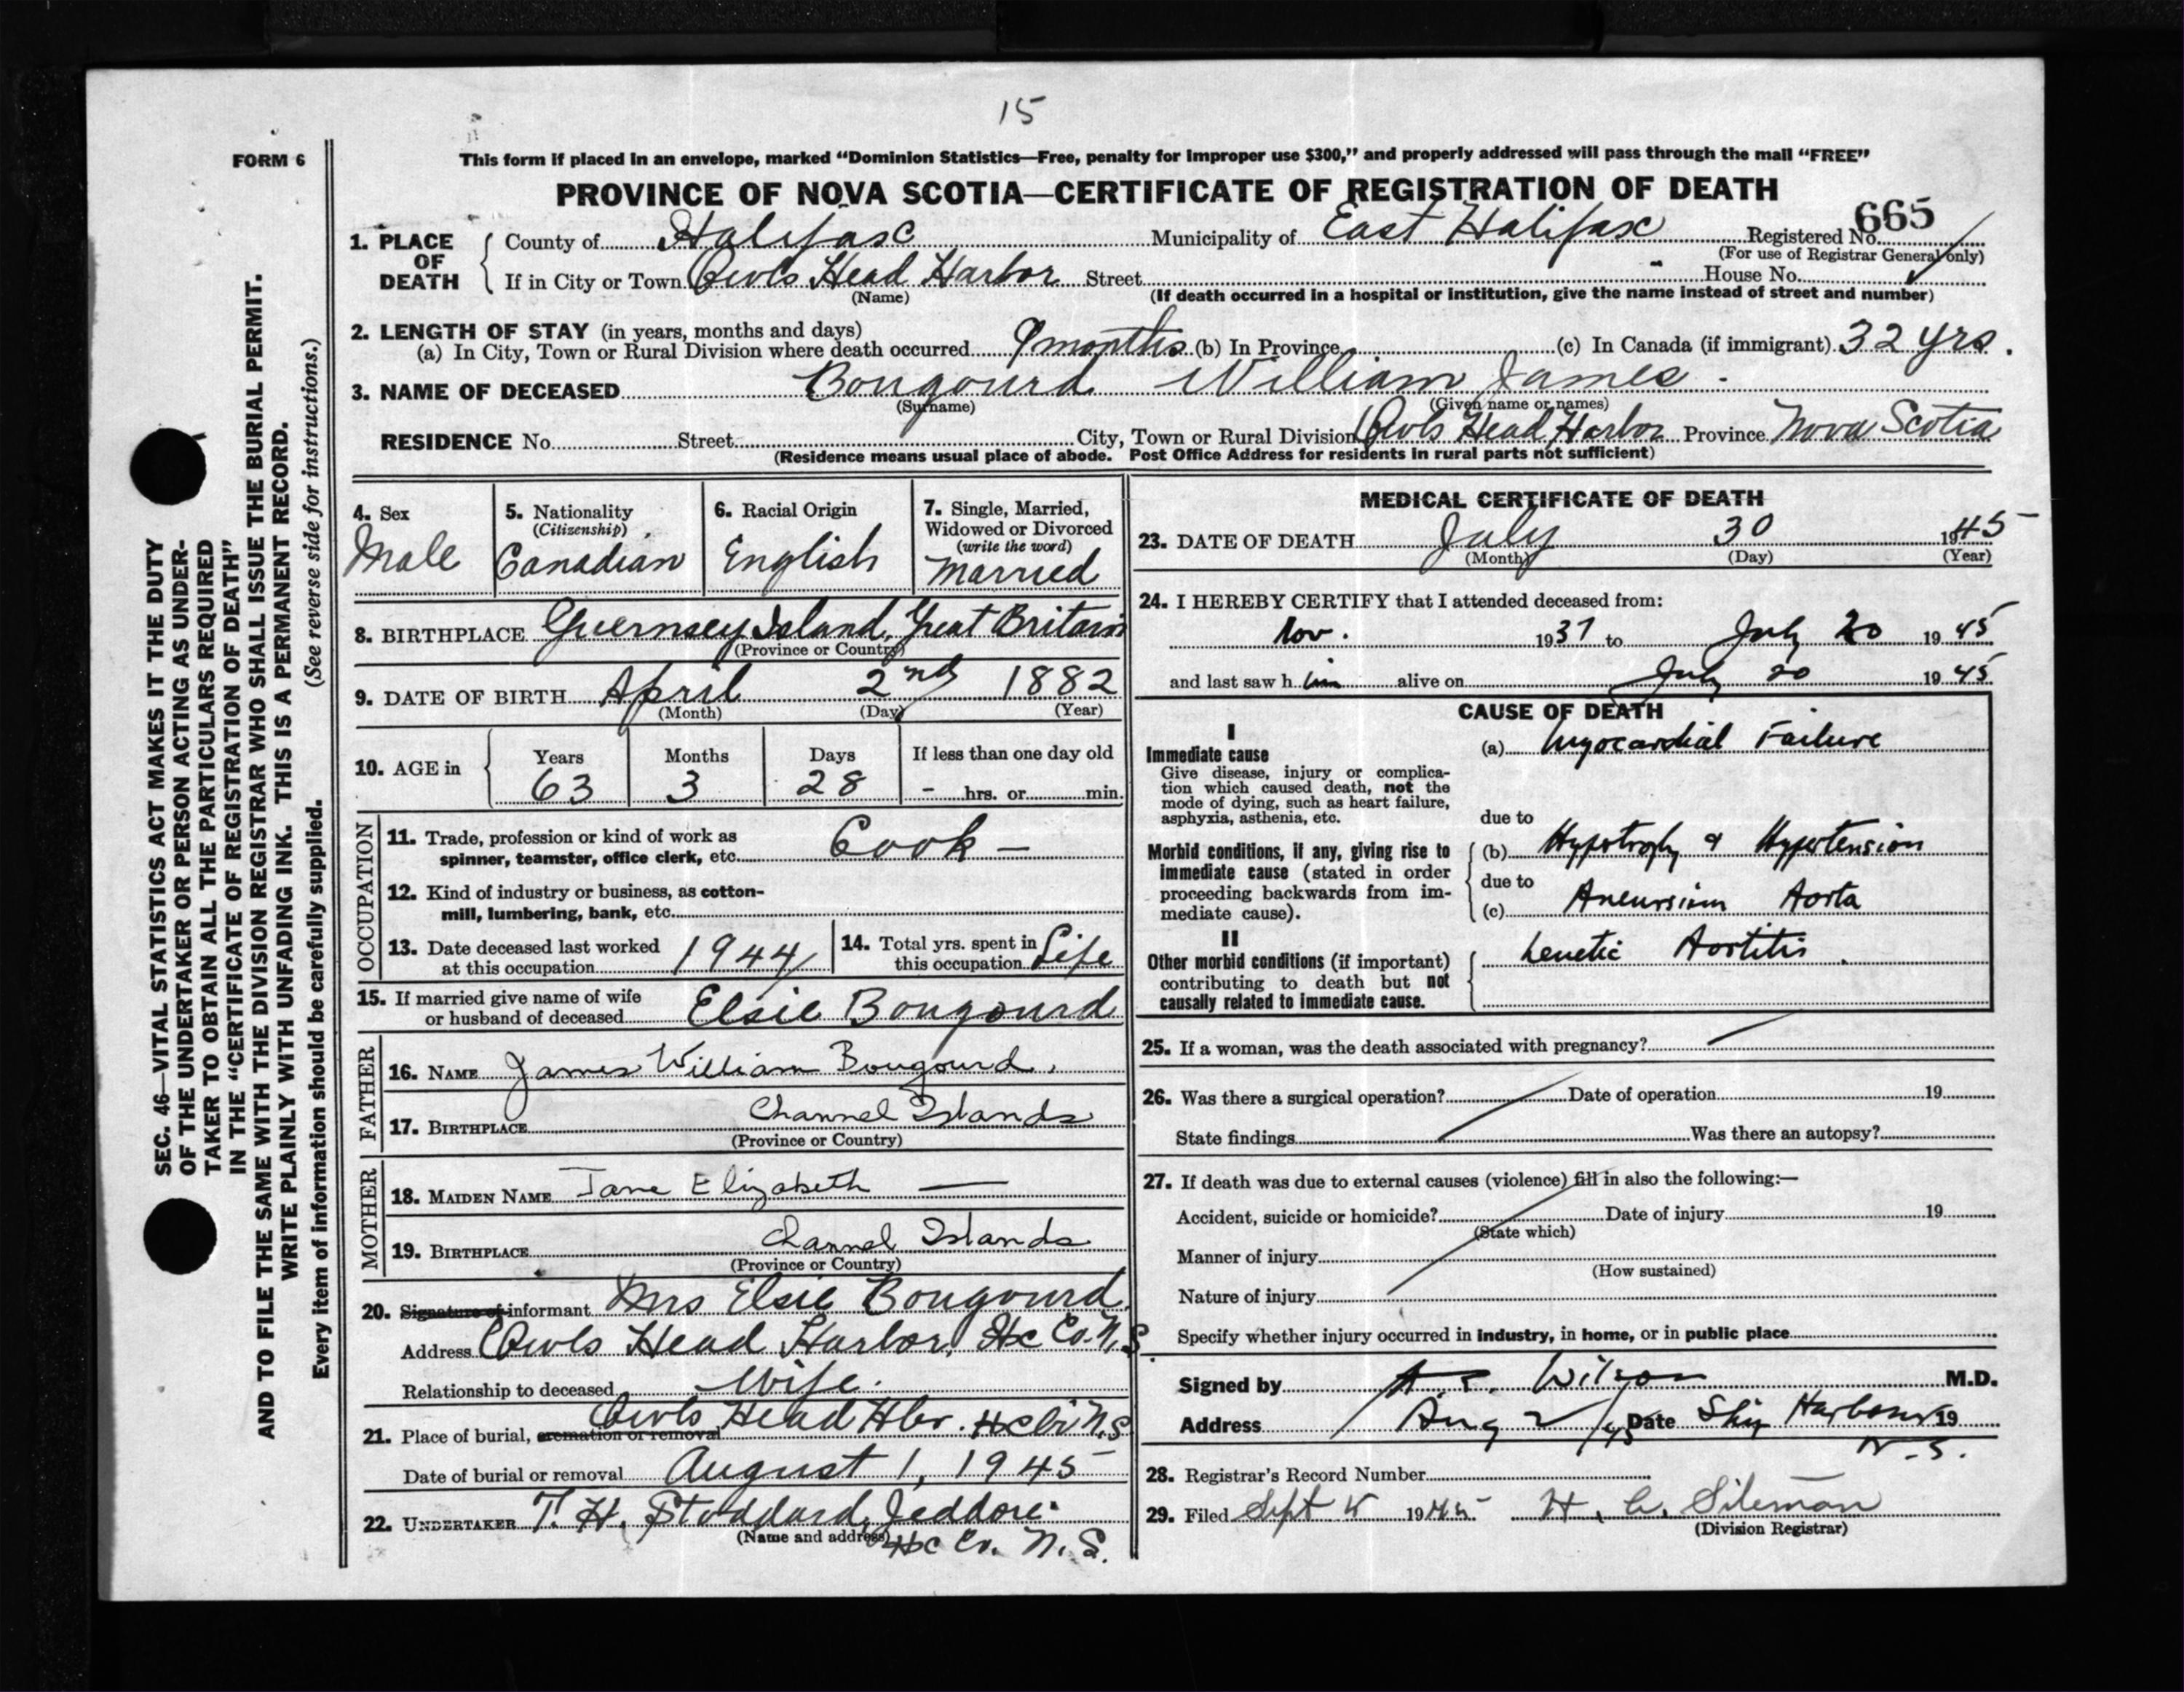 15
FORM 6
This form if placed in an envelope, marked "Dominion Statistics—Free, penalty for improper use $300," and properly addressed will pass through the mail "FREE"
PROVINCE OF NOVA SCOTIA—CERTIFICATE OF REGISTRATION OF DEATH
665
1. PLACE OF DEATH
County of Halifax Municipality of East Halifax Registered No.
(For use of Registrar General only)
If in City or Town Owls Head Harbor Street House No.
(Name) (If death occurred in a hospital or institution, give the name instead of street and number)
2. LENGTH OF STAY (in years, months and days)
(a) In City, Town or Rural Division where death occurred 9 months (b) In Province (c) In Canada (if immigrant) 32 yrs.
3. NAME OF DECEASED Bougourd William James
(Surname) (Given name or names)
RESIDENCE No. Street City, Town or Rural Division Owls Head Harbor Province Nova Scotia
(Residence means usual place of abode. Post Office Address for residents in rural parts not sufficient)
4. Sex
Male
5. Nationality
(Citizenship)
Canadian
6. Racial Origin
English
7. Single, Married,
Widowed or Divorced
(write the word)
Married
8. BIRTHPLACE Guernsey Island, Great Britain
(Province or Country)
9. DATE OF BIRTH April 2nd 1882
(Month) (Day) (Year)
10. AGE in
Years Months Days If less than one day old
63 3 28 - hrs. or min.
OCCUPATION
11. Trade, profession or kind of work as
spinner, teamster, office clerk, etc. Cook —
12. Kind of industry or business, as cotton-
mill, lumbering, bank, etc.
13. Date deceased last worked
at this occupation 1944
14. Total yrs. spent in
this occupation Life
15. If married give name of wife
or husband of deceased Elsie Bougourd
FATHER
16. NAME James William Bougourd.
17. BIRTHPLACE Channel Islands
(Province or Country)
MOTHER
18. MAIDEN NAME Jane Elizabeth —
19. BIRTHPLACE Channel Islands
(Province or Country)
20. Signature of informant Mrs Elsie Bougourd
Address Owls Head Harbor, Hx Co. N.S.
Relationship to deceased Wife.
21. Place of burial, cremation or removal Owls Head Hbr. Hx Co N.S.
Date of burial or removal August 1, 1945
22. UNDERTAKER T. H. Stoddard, Jeddore
(Name and address) Hx Co. N.S.
MEDICAL CERTIFICATE OF DEATH
23. DATE OF DEATH July 30 1945
(Month) (Day) (Year)
24. I HEREBY CERTIFY that I attended deceased from:
Nov. 1937 to July 20 1945
and last saw h im alive on July 20 1945
CAUSE OF DEATH
I
Immediate cause
Give disease, injury or complica-
tion which caused death, not the
mode of dying, such as heart failure,
asphyxia, asthenia, etc.
(a) Myocardial Failure
due to
Morbid conditions, if any, giving rise to
immediate cause (stated in order
proceeding backwards from im-
mediate cause).
(b) Hypotrophy & Hypertension
due to
(c) Aneursium Aorta
II
Other morbid conditions (if important)
contributing to death but not
causally related to immediate cause.
Leuetic Aortitis.
25. If a woman, was the death associated with pregnancy?
26. Was there a surgical operation? Date of operation 19
State findings Was there an autopsy?
27. If death was due to external causes (violence) fill in also the following:—
Accident, suicide or homicide? Date of injury 19
(State which)
Manner of injury
(How sustained)
Nature of injury
Specify whether injury occurred in industry, in home, or in public place
Signed by Wilson M.D.
Address Aug 2/45 Date Ship Harbour 19
N.S.
28. Registrar's Record Number
29. Filed Sept 1945 H. C. Siteman
(Division Registrar)
SEC. 46—VITAL STATISTICS ACT MAKES IT THE DUTY
OF THE UNDERTAKER OR PERSON ACTING AS UNDER-
TAKER TO OBTAIN ALL THE PARTICULARS REQUIRED
IN THE "CERTIFICATE OF REGISTRATION OF DEATH"
AND TO FILE THE SAME WITH THE DIVISION REGISTRAR WHO SHALL ISSUE THE BURIAL PERMIT.
WRITE PLAINLY WITH UNFADING INK. THIS IS A PERMANENT RECORD.
Every item of information should be carefully supplied. (See reverse side for instructions.)